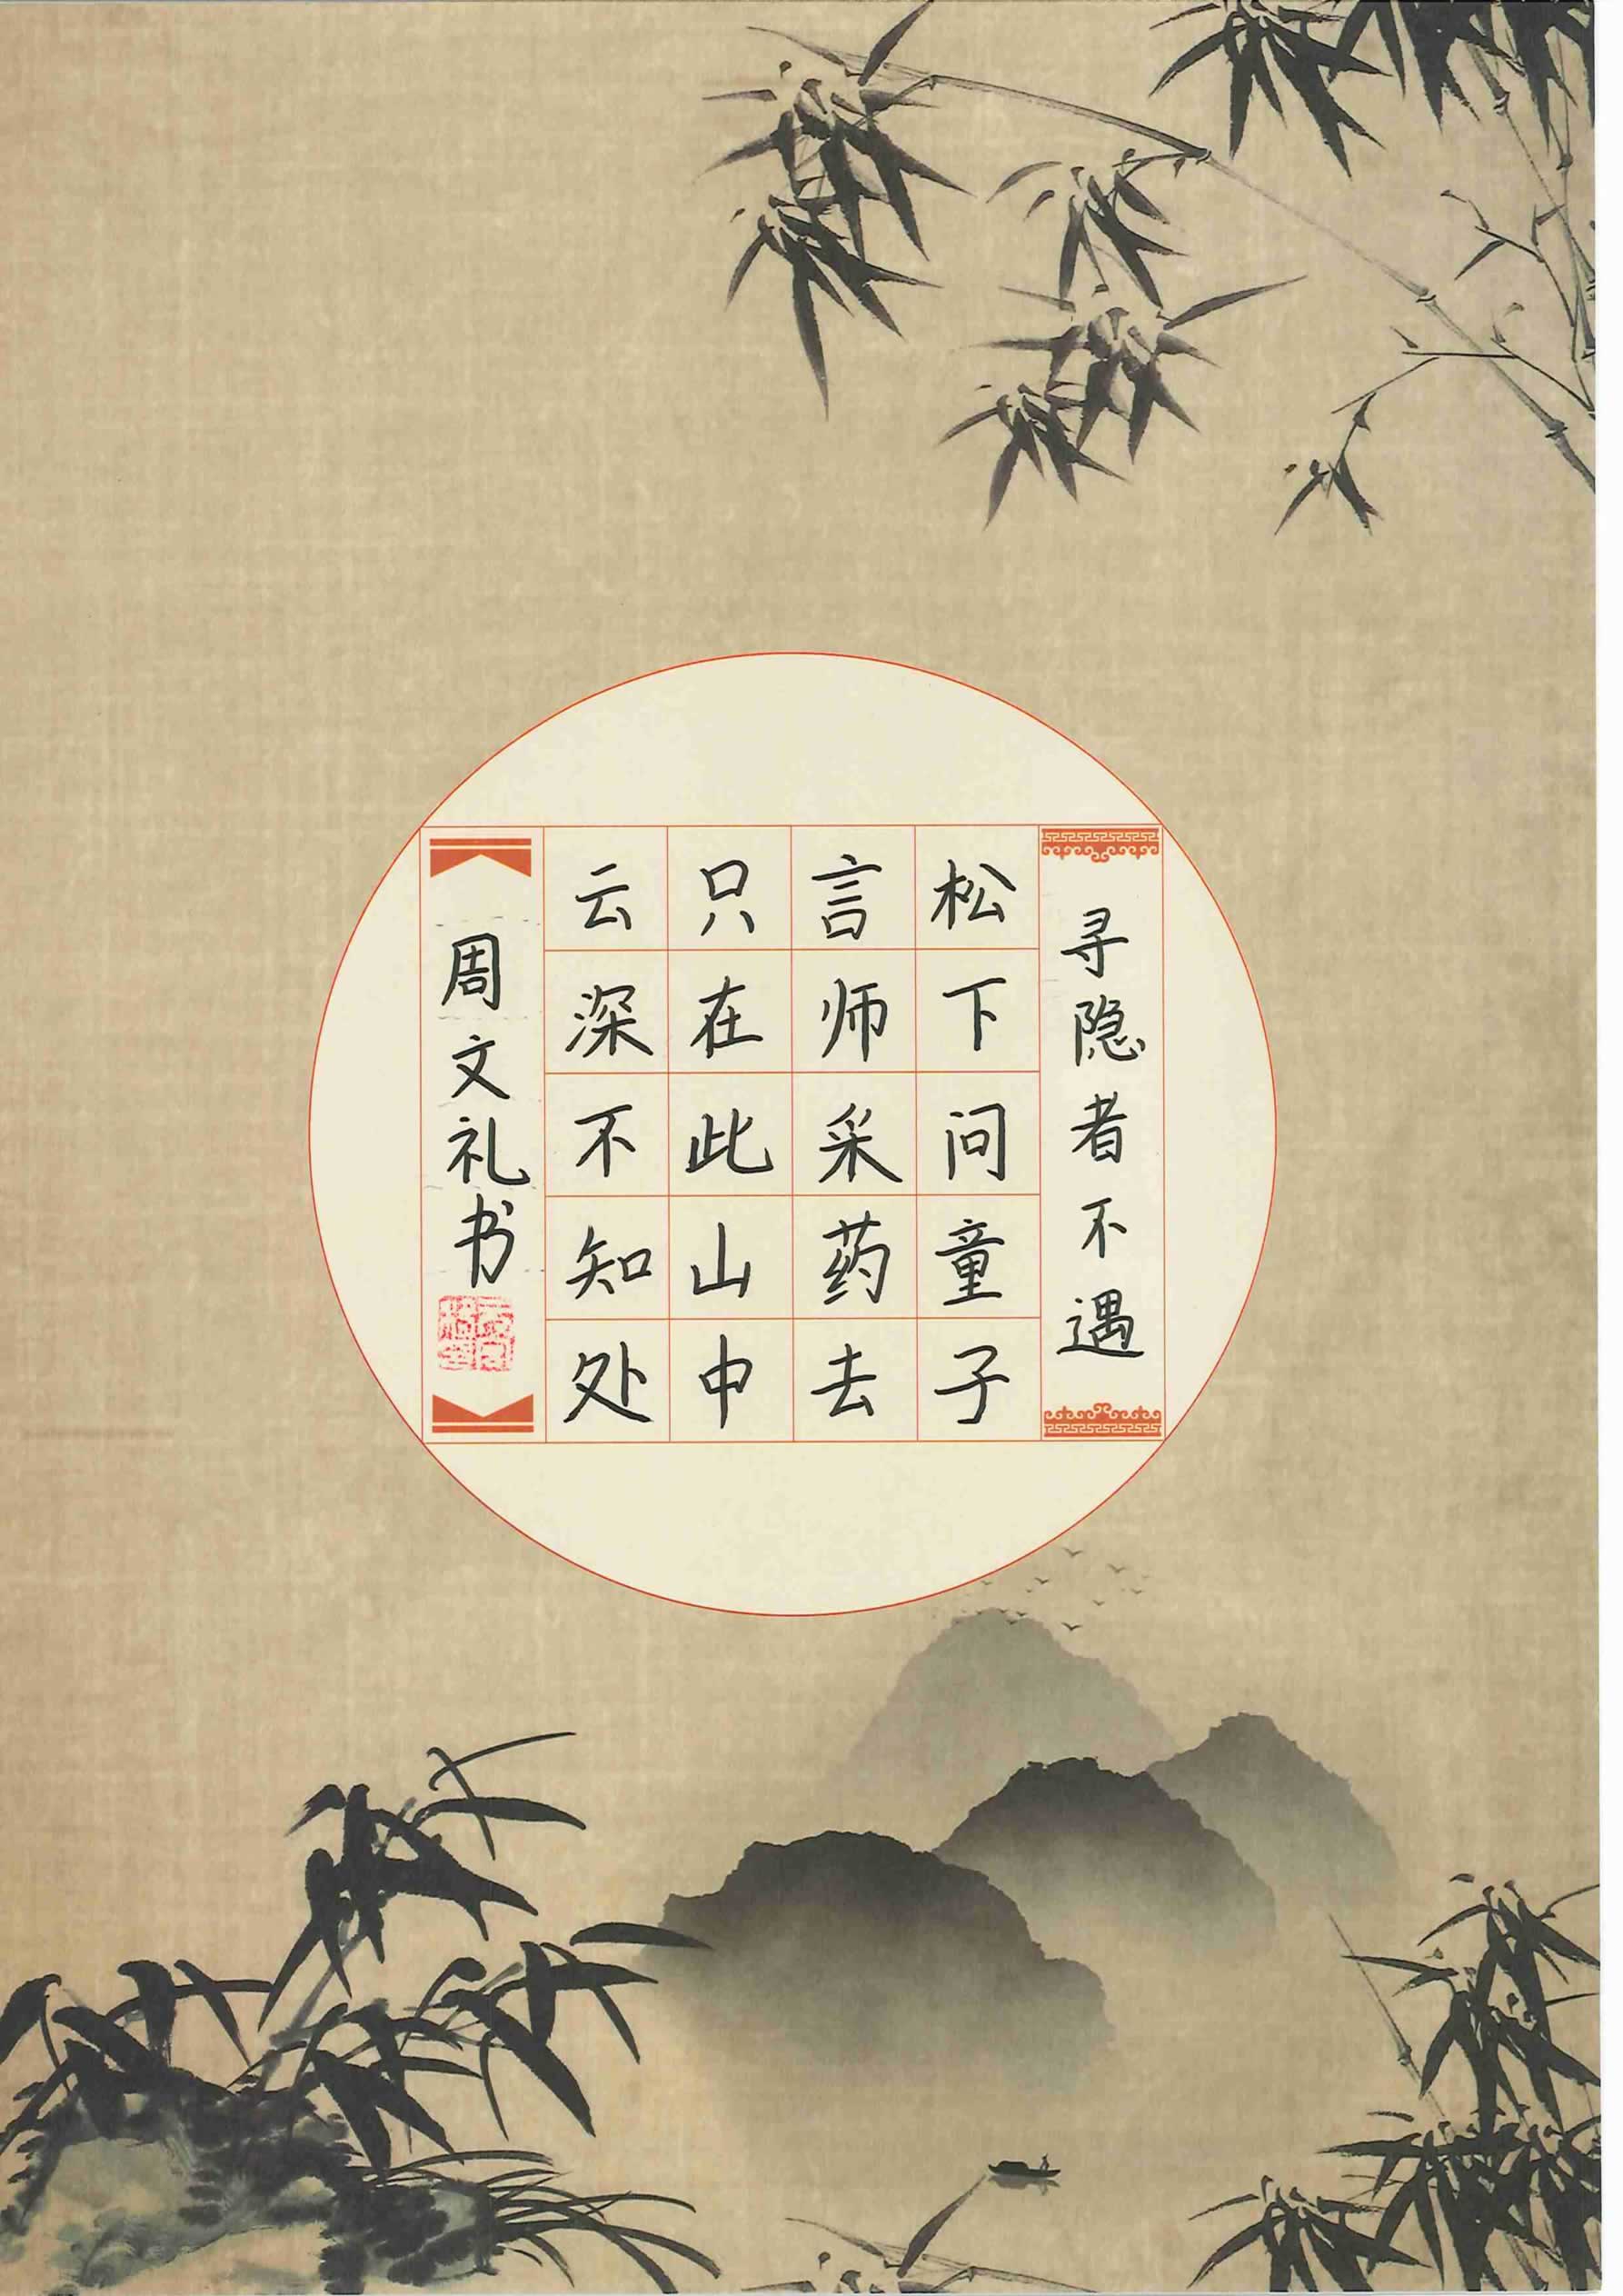 寻隐者不遇
松下问童子
言师采药去
只在此山中
云深不知处
周文礼书